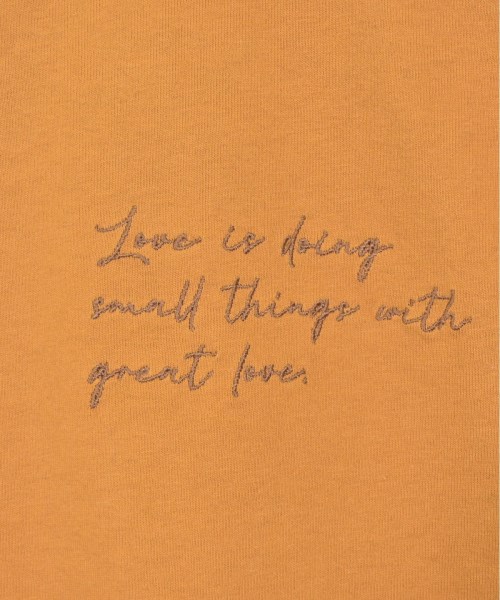 Love is doing
small things with
great love.